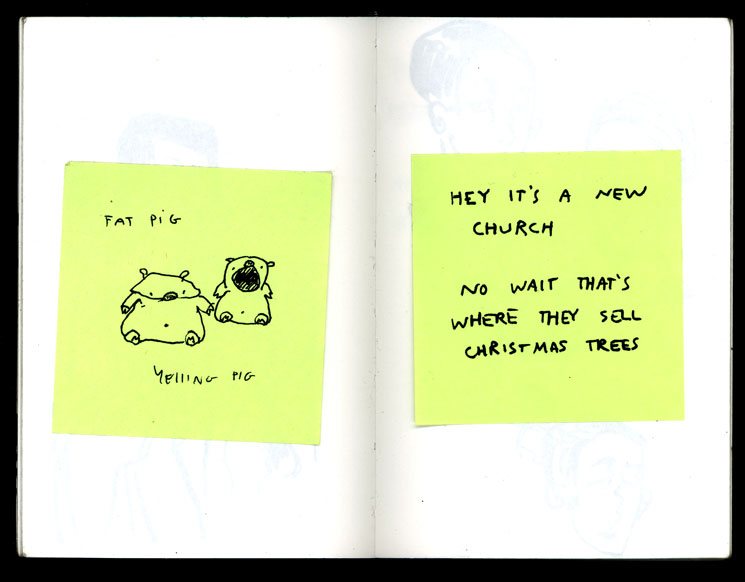 FAT PiG
YElliNG PIG
HEY IT'S A NEW
CHURCH
NO WAIT THAT'S
WHERE THEY SELL
CHRISTMAS TREES